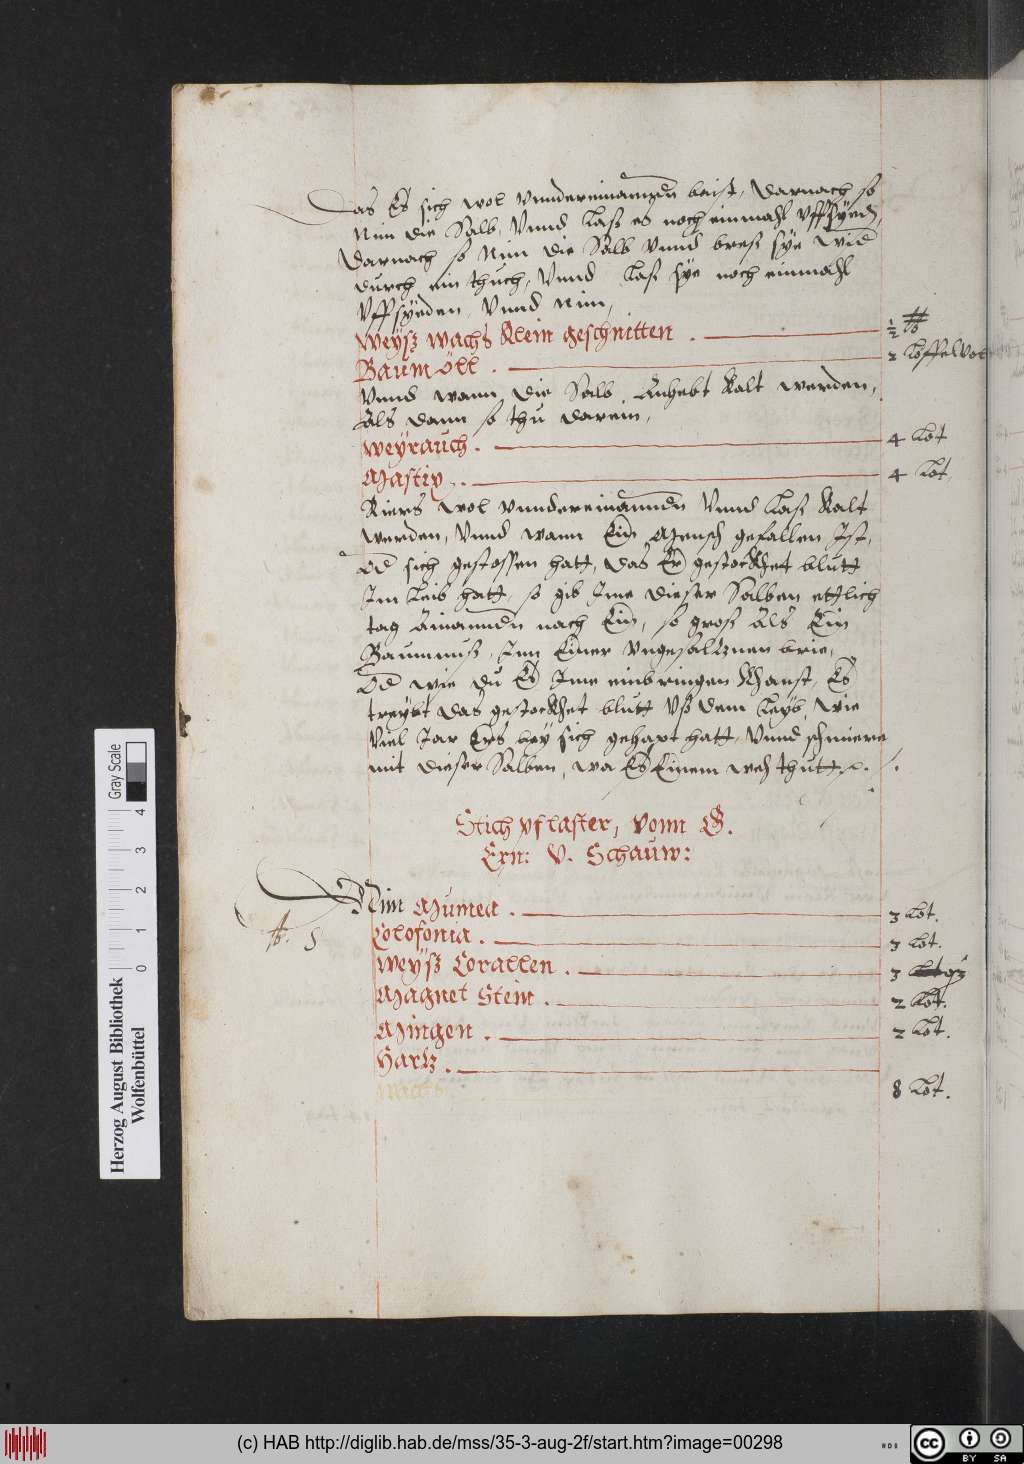 Das Es sich wol vnndereinanndn beist, Darnach so
Nim die Salb, Vnnd Laß es noch einmahl vffsÿedn,
Darnach so Nim die Salb vnnd breß sÿe wid
durch ein thuch, Vnnd Laß sÿe noch einmahl
Vffsÿeden, Vnnd Nim,
Weÿß wachs Klein geschnitten . ½ ℔
Baumöll . 2 Löffelvol
Vnnd wann die Salb Anhebt Kalt werden,
Als dann so thu darein,
Weÿrauch . 4 Lot
Mastix . 4 Lot
Riers wol vnndereinanndn Vnnd Laß Kalt
werden, Vnnd wann Ein Mensch gefallen Ist,
Od sich gestossen hatt, das Er gestockhet blutt
Im Leib hatt, so gib Ime dieser Salben ettlich
tag Ainanndn nach Ein, so groß Als Ein
Baumnuß, Inn Einer Vngesaltznen brie,
Od wie du Es Ime einbringen Khanst, Es
treÿbt das gestockhet blutt Vß dem Leÿb, wie
Viel Jar Ers beÿ sich gehapt hatt, Vnnd schmiere
mit dieser Salben, wa Es Einem weh thutt
Stich pflaster, vonn G.
Ern: V. Schauw:
Nim Mumea . 3 Lot.
Colofonia . 3 Lot.
Weÿß Corallen . 3
Magnet Stein . 2 Lot.
Mingen . 2 Lot.
Hartz .
Wachs 8 Lot.
Herzog August Bibliothek
Wolfenbüttel
Gray Scale
0 1 2 3 4
(c) HAB http://diglib.hab.de/mss/35-3-aug-2f/start.htm?image=00298
cc BY SA